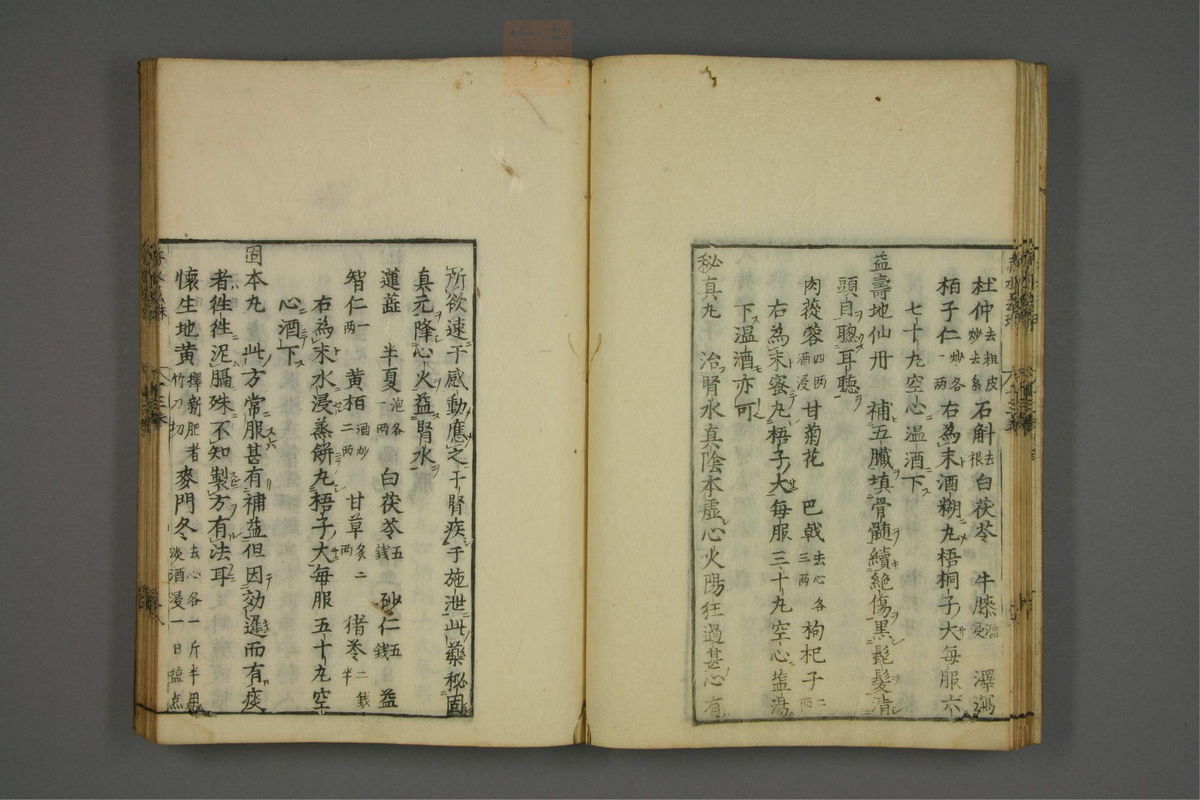 杜仲去粗皮炒去絲石斛去根白茯苓 牛膝酒浸 澤瀉
栢子仁炒各一兩右為末酒糊丸梧桐子大每服六
七十丸空心温酒下
益壽地仙丹 補五臟填骨髓續絶傷黒髭髮清
頭目聰耳聽
肉蓯蓉四两酒浸甘菊花 巴戟去心各三两枸杞子二两
右為末蜜丸梧子大每服三十丸空心盐湯
下温酒亦可
秘真丸 治腎水真陰本虚心火陽狂過甚心有
所欲速于感動應之于腎疾于施泄此藥秘固
真元降心火益腎水
蓮蕋 半夏泡各一两 白茯苓五錢 砂仁五錢 益
智仁一两 黄栢酒炒二两 甘草炙二两 猪苓二錢半
右為末水浸蒸餅丸梧子大每服五十丸空
心酒下
固本丸 此方常服甚有補益但因効遲而有痰
者徃徃泥膈殊不知製方有法耳
懷生地黄擇新肥者竹刀切 麥門冬去心各一斤半用淡酒浸一日